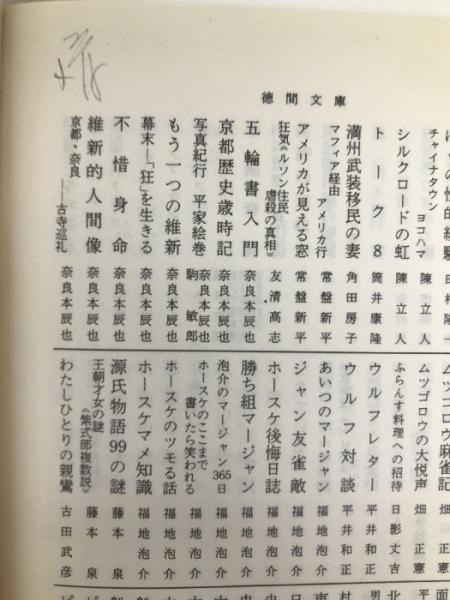 徳間文庫
チャイナタウン ヨコハマ 陳立人
シルクロードの虹 陳立人
トーク8 筒井康隆
満州武装移民の妻 角田房子
マフィア経由 アメリカ行 常盤新平
アメリカが見える窓 常盤新平
狂気《ルソン住民虐殺の真相》 友清高志
五輪書入門 奈良本辰也
京都歴史歳時記 奈良本辰也
写真紀行 平家絵巻 奈良本辰也 駒敏郎
もう一つの維新 奈良本辰也
幕末―「狂」を生きる 奈良本辰也
不惜身命 奈良本辰也
維新的人間像 奈良本辰也
京都・奈良――古寺巡礼 奈良本辰也
ムツゴロウ麻雀記 畑正憲
ムツゴロウの大悦声 畑正憲
ふらんす料理への招待 日影丈吉
ウルフレター 平井和正
ウルフ対談 平井和正
あいつのマージャン 福地泡介
ジャン友雀敵 福地泡介
ホースケ後悔日誌 福地泡介
勝ち組マージャン 福地泡介
泡介のマージャン365日 福地泡介
ホースケのここまで書いたら笑われる 福地泡介
ホースケのツモる話 福地泡介
ホースケマメ知識 福地泡介
源氏物語99の謎 藤本泉
王朝才女の謎《紫式部複数説》 藤本泉
わたしひとりの親鸞 古田武彦